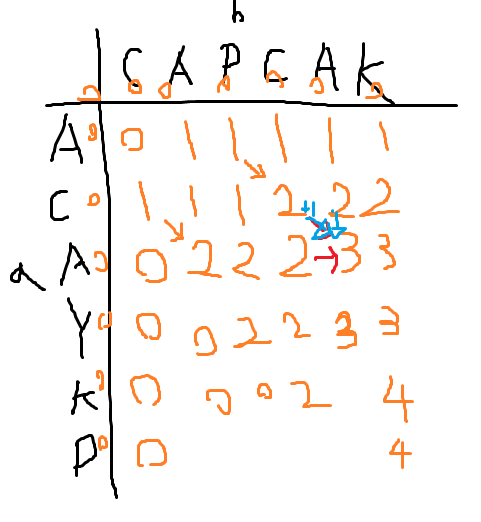 b
C A P C A K
0 0 0 0 0 0 0
A 0 0 1 1 1 1 1
C 0 1 1 1 2 +1 2 2
a A 0 0 2 2 2 3 3
Y 0 0 0 2 2 3 3
K 0 0 0 0 2 4
P 0 0 4